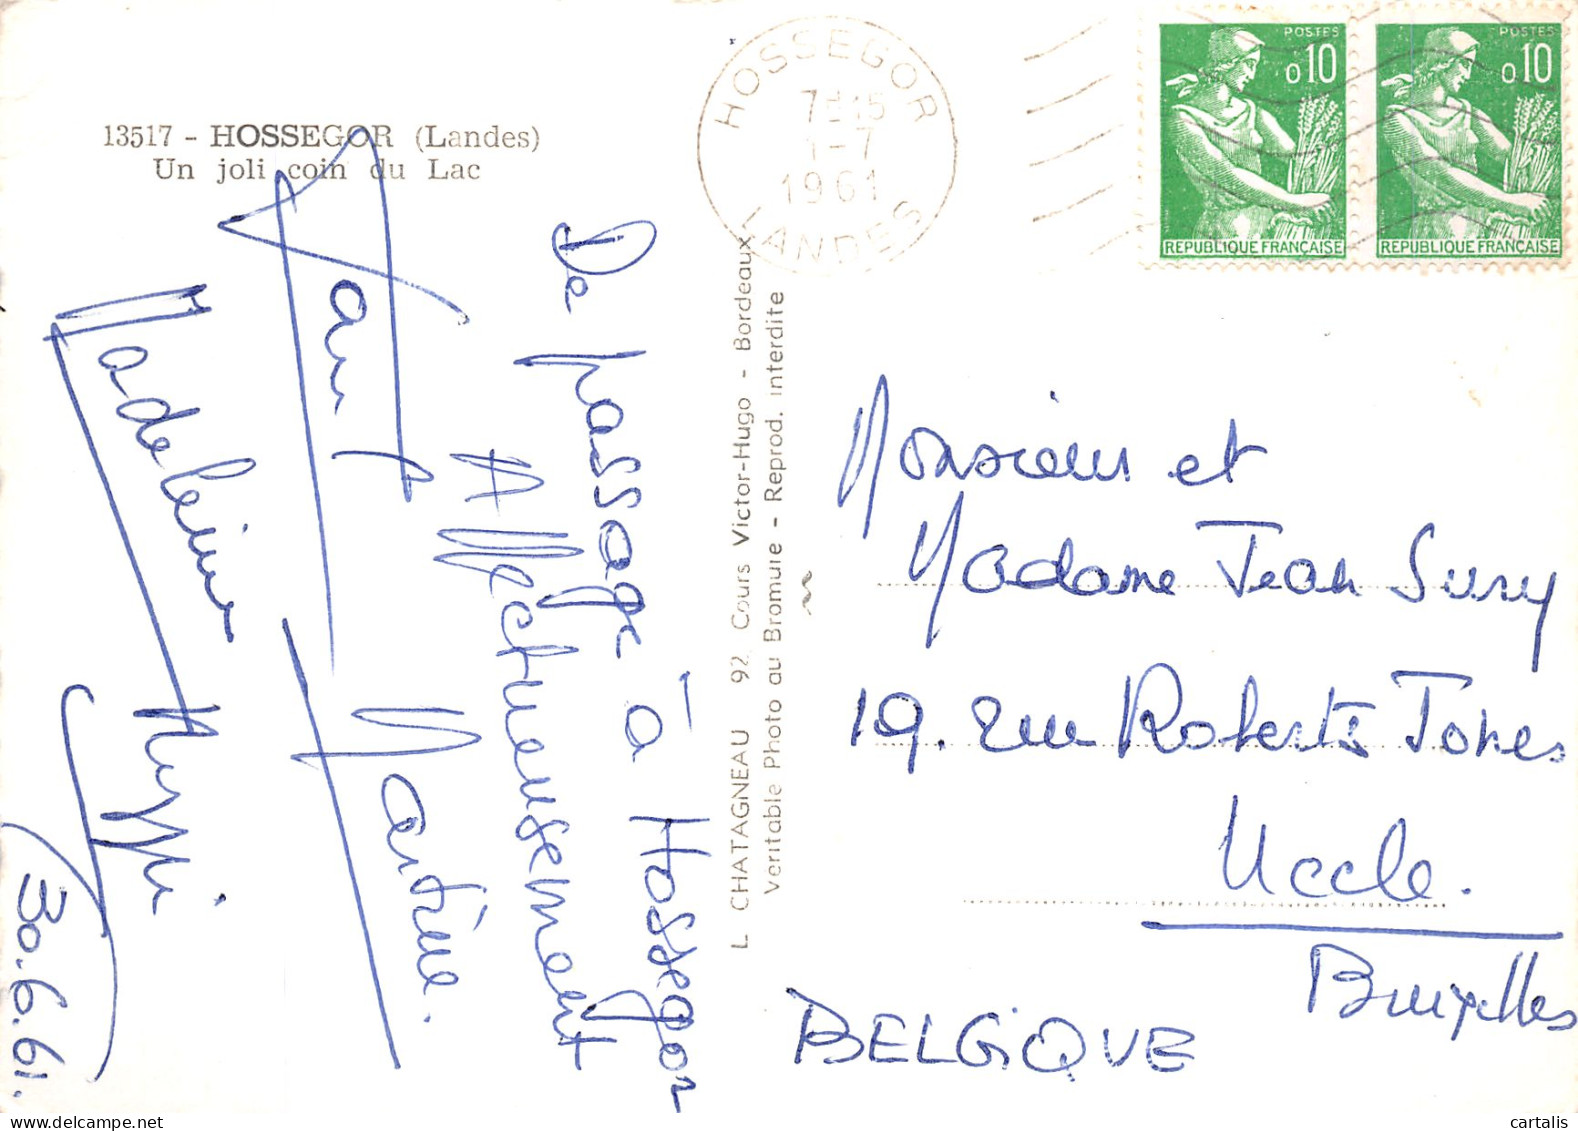 13517 - HOSSEGOR (Landes)
Un joli coin du Lac
HOSSEGOR
7H15
1-7
1961
LANDES
POSTES
0,10
REPUBLIQUE FRANÇAISE
POSTES
0,10
REPUBLIQUE FRANÇAISE
De passage à Hossegor
Affectueusement
Martine.
Madeleine
30.6.61.
L. CHATAGNEAU 92 Cours Victor-Hugo - Bordeaux
Veritable Photo au Bromure - Reprod. interdite
Monsieur et
Madame Jean Sury
19. rue Roberts Jones
Uccle.
Bruxelles
BELGIQUE
cartalis